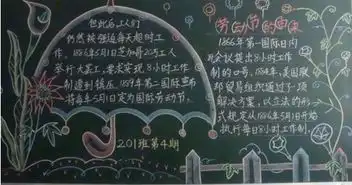 但此后工人们
仍然被强迫每天超时工
作。1886年5月1日芝加哥20万工人
举行大罢工，要求实现8小时工作
制遭到镇压。1889年第二国际宣布
将每年5月1日定为国际劳动节。
201班第4期
劳动节的由来
1866年第一国际日内
瓦会议提出8小时工作
制的口号。1884年，美国联
邦贸易组织通过了一项
解决方案，以立法的形
式规定从1886年5月1日开始
执行每日8小时工作制。